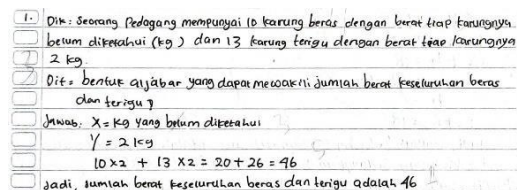 1. Dik: Seorang Pedagang mempunyai 10 karung beras dengan berat tiap karungnya
belum diketahui (kg) dan 13 karung terigu dengan berat tiap karungnya
2 kg.
Dit: bentuk aljabar yang dapat mewakili jumlah berat keseluruhan beras
dan terigu?
Jawab: X = kg yang belum diketahui
Y = 2 kg
10 x 2 + 13 x 2 = 20 + 26 = 46
Jadi, Jumlah berat keseluruhan beras dan terigu adalah 46